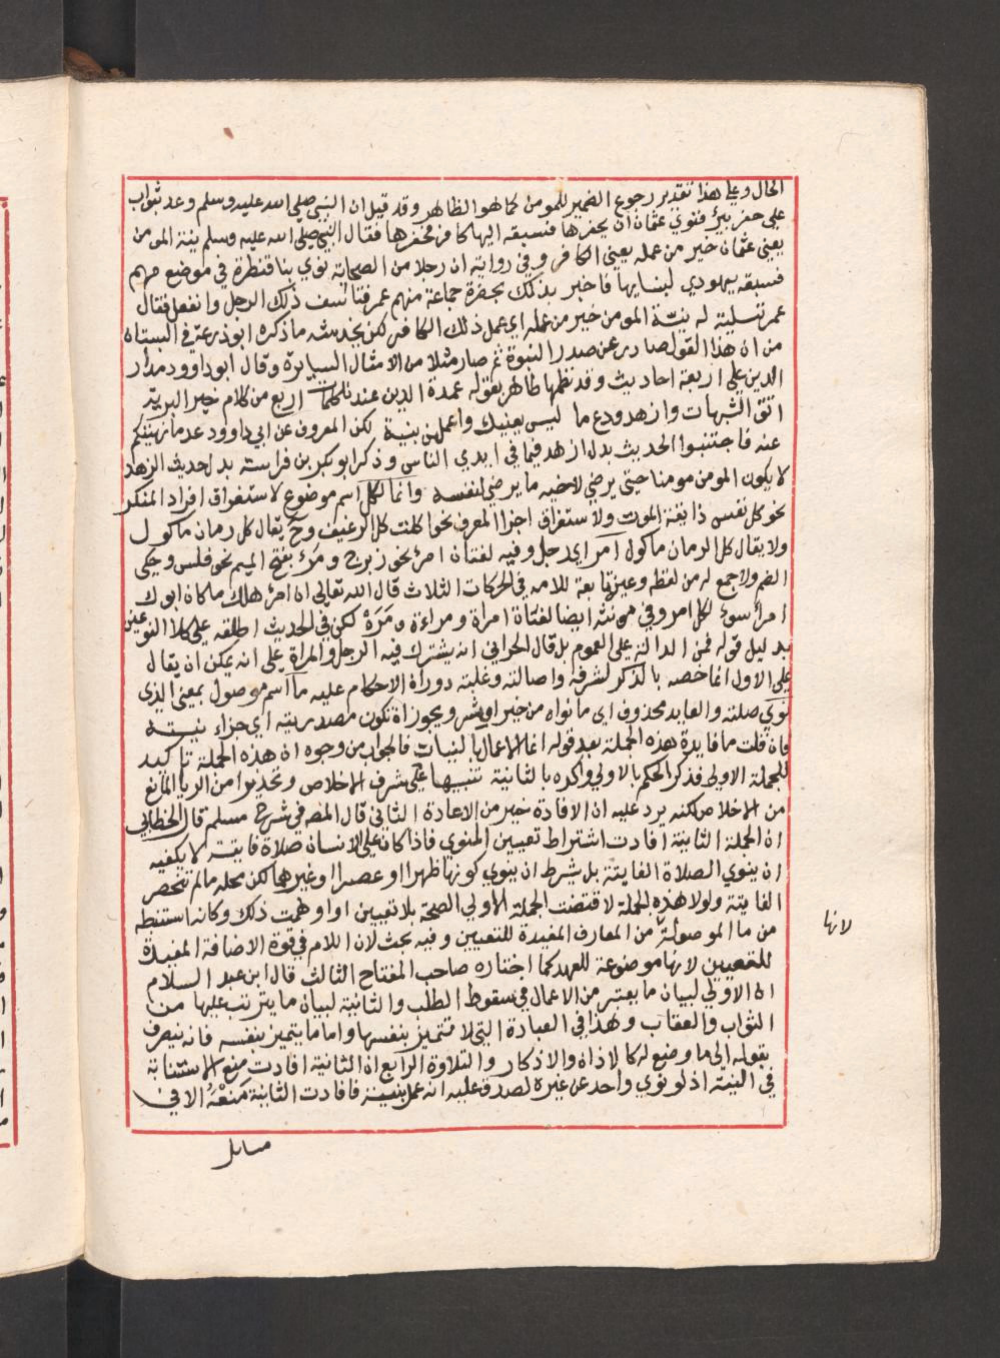 الحال وعلى هذا تقدير رجوع الضمير للمومن كما هو الظاهر وقد قيل ان النبي صلى الله عليه وسلم وعد بثواب
على حفر بير فنوي عثمان ان يحفرها فسبقه اليها كافر فحفرها فقال النبي صلى الله عليه وسلم نية المومن
يعني عثمان خير من عمله يعني الكافر وفي رواية ان رجلا من الصحابة نوي بنا قنطرة في موضع مهم
فسبقه يهودي لبنايها فاخبر بذلك بحضرة جماعة منهم عمر فتاسف ذلك الرجل وانفعل فقال
عمر تسلية له نية المومن خير من عمله اي عمل ذلك الكافر لكن بخدشه ما ذكره ابو ذرعة في البستان
من ان هذا القول صادر عن صدر النبوة ثم صار مثلا من الامثال السايرة وقال ابو داوود مدار
الدين على اربعة احاديث وقد نظمها طاهر بقوله عمدة الدين عندنا كلمات اربع من كلام خير البرية
اتق الشبهات وازهد ودع ما ليس يعنيك واعملن بنية لكن المعروف عن ابي داوود عد ما نهيتكم
عنه فاجتنبوا الحديث بدل ازهد فيما في ايدي الناس وذكر ابو بكر بن فراسته بدل حديث الزهد
لا يكون المومن مومنا حتى يرضي لاخيه ما يرضي لنفسه وانما لكل اسم موضوع لاستغراق افراد المنكر
نحو كل نفس ذايقة الموت ولاستغراق اجزا المعرف نحو اكلت كل الرغيف وح يقال كل رمان ماكول
ولا يقال كل الرمان ماكول امر اي رجل وفيه لغتان امرئ نحو زبرج ومرء بفتح الميم نحو فلس وحكي
الضم ولا جمع له من لفظه وعينه تابعة للامه في الحركات الثلاث قال الله تعالى ان امرؤ هلك ما كان ابوك
امرأ سوء لكل امرء وفي مونثه ايضا لغتان امراة ومراءة ومَرَة لكن في الحديث اطلقه على كلا النوعين
بدليل قوله فمن الدالة على العموم بل قال الحراني انه يشترك فيه الرجل والمراة على انه يمكن ان يقال
على الاول انما خصه بالذكر لشرفه واصالته وغلبته دوران الاحكام عليه ما اسم موصول بمعني الذي
نوي صلته والعايد محذوف اي ما نواه من خير او شر ويجوز ان تكون مصدرية اي جزاء نيته
فان قلت ما فايدة هذه الجملة بعد قوله انما الاعمال بالنيات فالجواب من وجوه ان هذه الجملة تاكيد
للجملة الاولي فذكر الحكم بالاولي واكده بالثانية تنبيها على شرف الاخلاص وتحذيرا من الريا المانع
من الاخلاص لكنه يرد عليه ان الافادة خير من الاعادة الثاني قال المص في شرح مسلم قال الخطابي
ان الجملة الثانية افادت اشتراط تعيين المنوي فاذا كان على الانسان صلاة فايتة لا يكفيه
ان ينوي الصلاة الفايتة بل شرط ان ينوي كونها ظهرا او عصرا او غيرهما لكن محله مالم تنحصر
الفايتة ولولا هذه الجملة لاقتضت الجملة الاولي الصحة بلا تعيين او اوهمت ذلك وكانه استنبطه
من ما الموصولة من المعارف المفيدة للتعيين وفيه بحث لان اللام في قوة الاضافة المفيدة
للتعيين لانها موضوعة للعهد كما اختاره صاحب المفتاح الثالث قال ابن عبد السلام
ان الاولي لبيان ما يعتبر من الاعمال في سقوط الطلب والثانية لبيان ما يترتب عليها من
الثواب والعقاب وهذا في العبادة التي لا تتميز بنفسها واما ما يتميز بنفسه فانه ينصرف
بقوله الي ما وضع له كالاذان والاذكار والتلاوة الرابع ان الثانية افادت منع الاستنابة
في النية اذ لو نوي واحد عن غيره لصدق عليه انه عمل بنية فافادت الثانية مَنْعَهُ الا في
مسايل
لانها